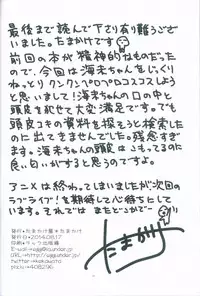 最後まで読んで下さり有り難うござい
ました。たまかけです
前回の本が精神的なものだった
ので、今回は海未ちゃんをじっくり
ねっとりクンクンペロペロコスコスしよう
と思いまして!海未ちゃんの口の中と
頭皮を犯せて大変満足です。でも
頭皮コキの資料を探そうと検索した
のに出てきませんでした。残念すぎ
ます。海未ちゃんの頭皮はこもってるのに
良い匂いがすると思うのですよ。
アニメは終わってしまいましたが次回の
ラブライブ!を期待して心待ちにして
います。それではまたどこかで
たまかけ
発行・たまかけ屋*たまかけ
発行日・2014.08.17